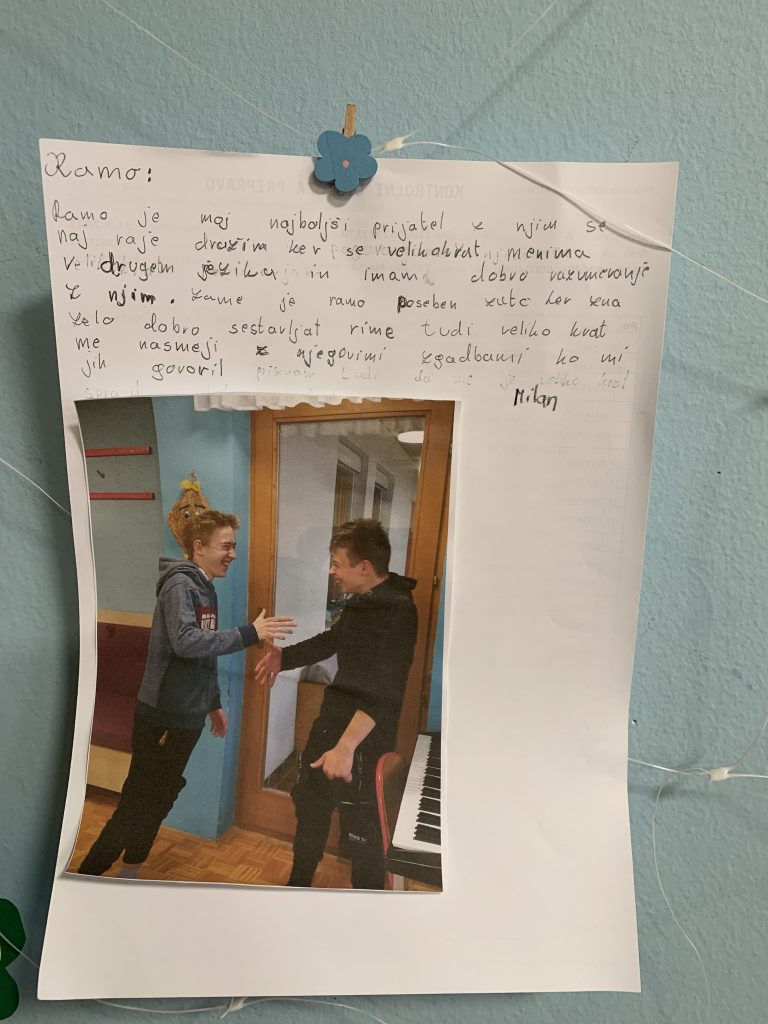 Ramo:
Ramo je moj najboljši prijatel z njim se
naj raje družim ker se velikokrat menima
v drugem jeziku in imam dobro razumevanje
z njim. Zame je ramo poseben zato ker zna
zelo dobro sestavljat rime tudi veliko krat
me nasmeji z njegovimi zgodbami ko mi
jih govoril priznam tudi da me je veliko krat
Milan